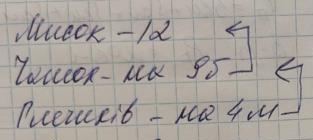 Мисок - 12
Чашок - на 9б
Глечиків - на 4 м